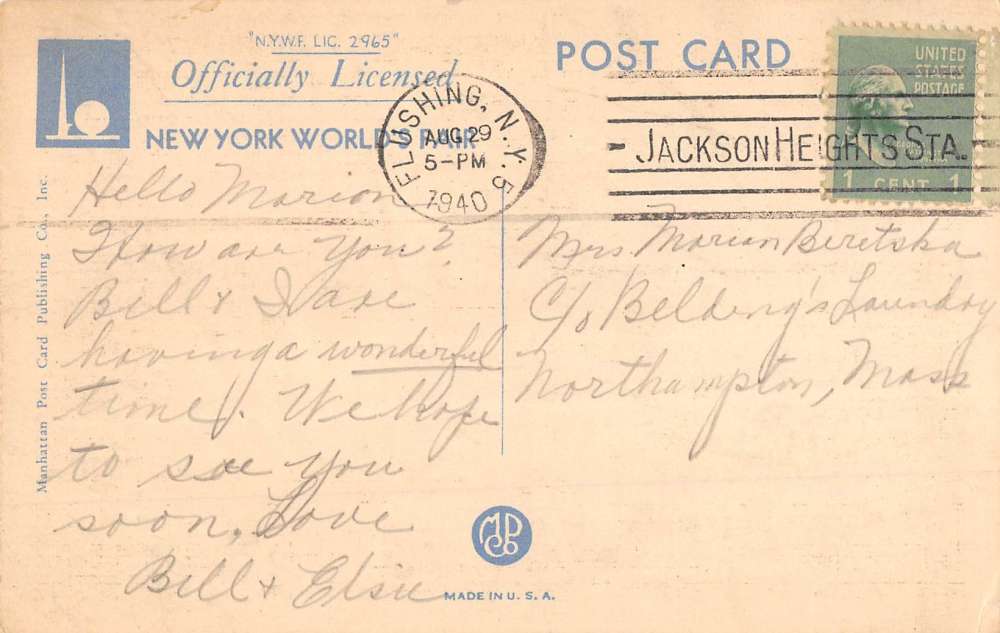 "N.Y.W.F. LIC. 2965"
Officially Licensed
NEW YORK WORLD'S FAIR
POST CARD
FLUSHING, N.Y. 5
AUG 29
5-PM
1940
JACKSON HEIGHTS STA.
UNITED
STATES
POSTAGE
1 CENT 1
Hello Marion
How are you?
Bill & I are
having a wonderful
time. We hope
to see you
soon. Love
Bill & Elsie
Mrs Marion Beretska
C/o Belding's Laundry
Northampton, Mass
Manhattan Post Card Publishing Co., Inc.
MPCCo
MADE IN U.S.A.